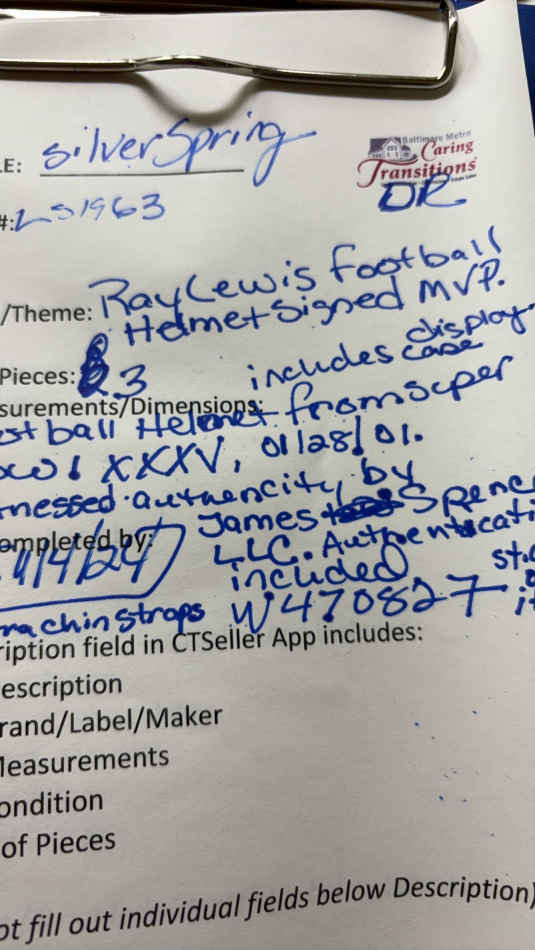 LE: silverSpring
Baltimore Metro
Caring
Transitions
DR
#: LS1963
/Theme: Ray Lewis Football
Helmet signed MVP.
Pieces: 3 includes display case
surements/Dimensions:
ot ball Helmet from super
owl XXXV, 01/28/01.
nessed authencity by
ompleted by: James Spence
LLC. Authenticati
included
ra chin straps W470827
ription field in CTSeller App includes:
escription
rand/Label/Maker
Measurements
ondition
of Pieces
ot fill out individual fields below Description)